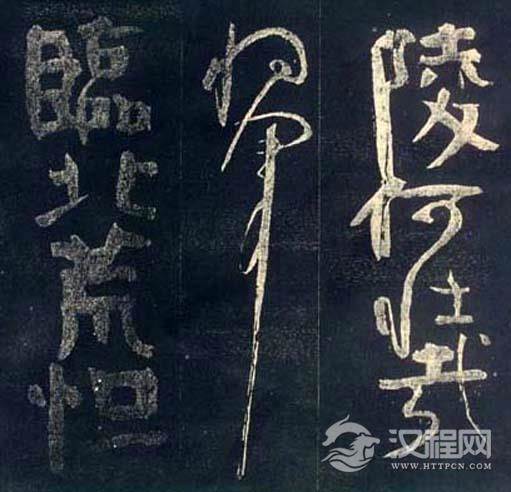 陵何壯哉
將軍
臨北荒烜
汉程网
WWW.HTTPCN.COM